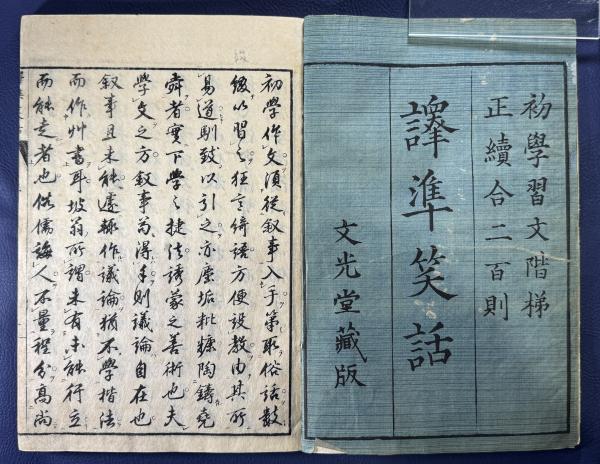 初學習文階梯
正續合二百則
譯準笑話
文光堂藏版
初學作文須從叙事入手第取俗話數
綴以習之狂言綺語方便設教由其所
易道馴致以引之亦塵垢粃糠陶鑄堯
舜者實下學之捷徑誘蒙之善術也夫
學文之方叙事為得手則議論自在也
叙事且未能遽作議論猶不學楷法
而作艸書耳坡翁所謂未有未能行立
而能走者也俗儒誨人不量程分高尚